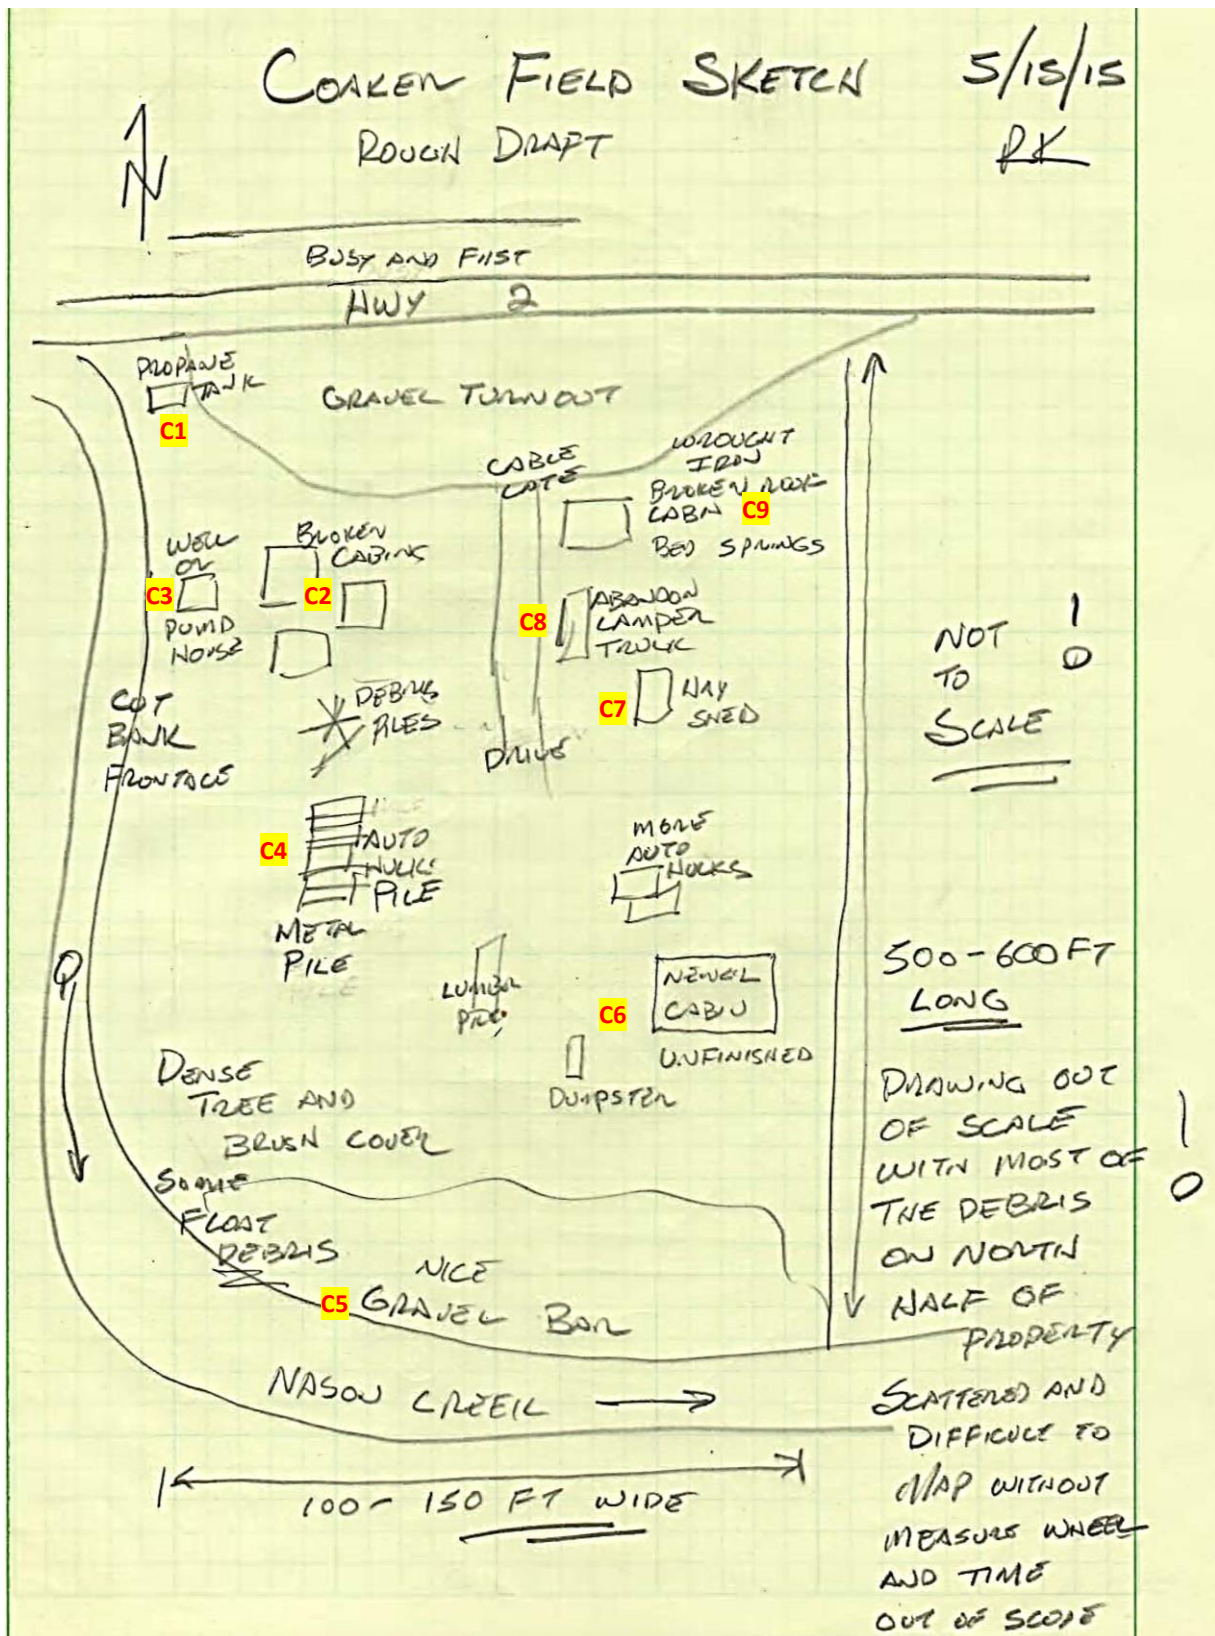 COAKER FIELD SKETCH 5/15/15
ROUGH DRAFT RK
N
BUSY AND FAST
HWY 2
PROPANE
TANK
C1
GRAVEL TURNOUT
CABLE
GATE
WROUGHT
IRON
BROKEN ROOF
CABIN C9
BED SPRINGS
WELL
OR
C3
PUMP
HOUSE
BROKEN
CABINS
C2
C8
ABANDON
CAMPER
TRUCK
C7
HAY
SHED
NOT
TO
SCALE
CUT
BANK
FRONTAGE
DEBRIS
PILES
DRIVE
C4
AUTO
HULKS
PILE
METAL
PILE
MORE
AUTO
HULKS
500-600 FT
LONG
Q
LUMBER
PILE
C6
NEWER
CABIN
UNFINISHED
DUMPSTER
DENSE
TREE AND
BRUSH COVER
DRAWING OUT
OF SCALE
WITH MOST OF
THE DEBRIS
ON NORTH
HALF OF
PROPERTY
SOME
FLOAT
DEBRIS
C5
NICE
GRAVEL BAR
NASON CREEK
SCATTERED AND
DIFFICULT TO
MAP WITHOUT
MEASURE WHEEL
AND TIME
OUT OF SCOPE
100-150 FT WIDE